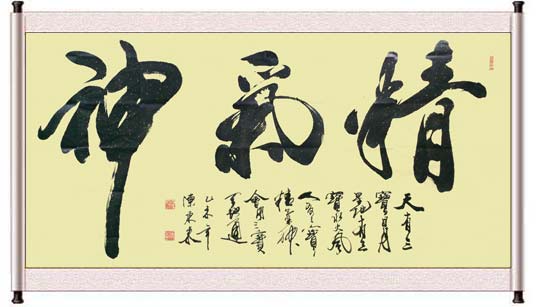 精氣神
天有三
寶日月
星地有三
寶水火風
人有三寶
精氣神
會用三寶
天地通
乙未年